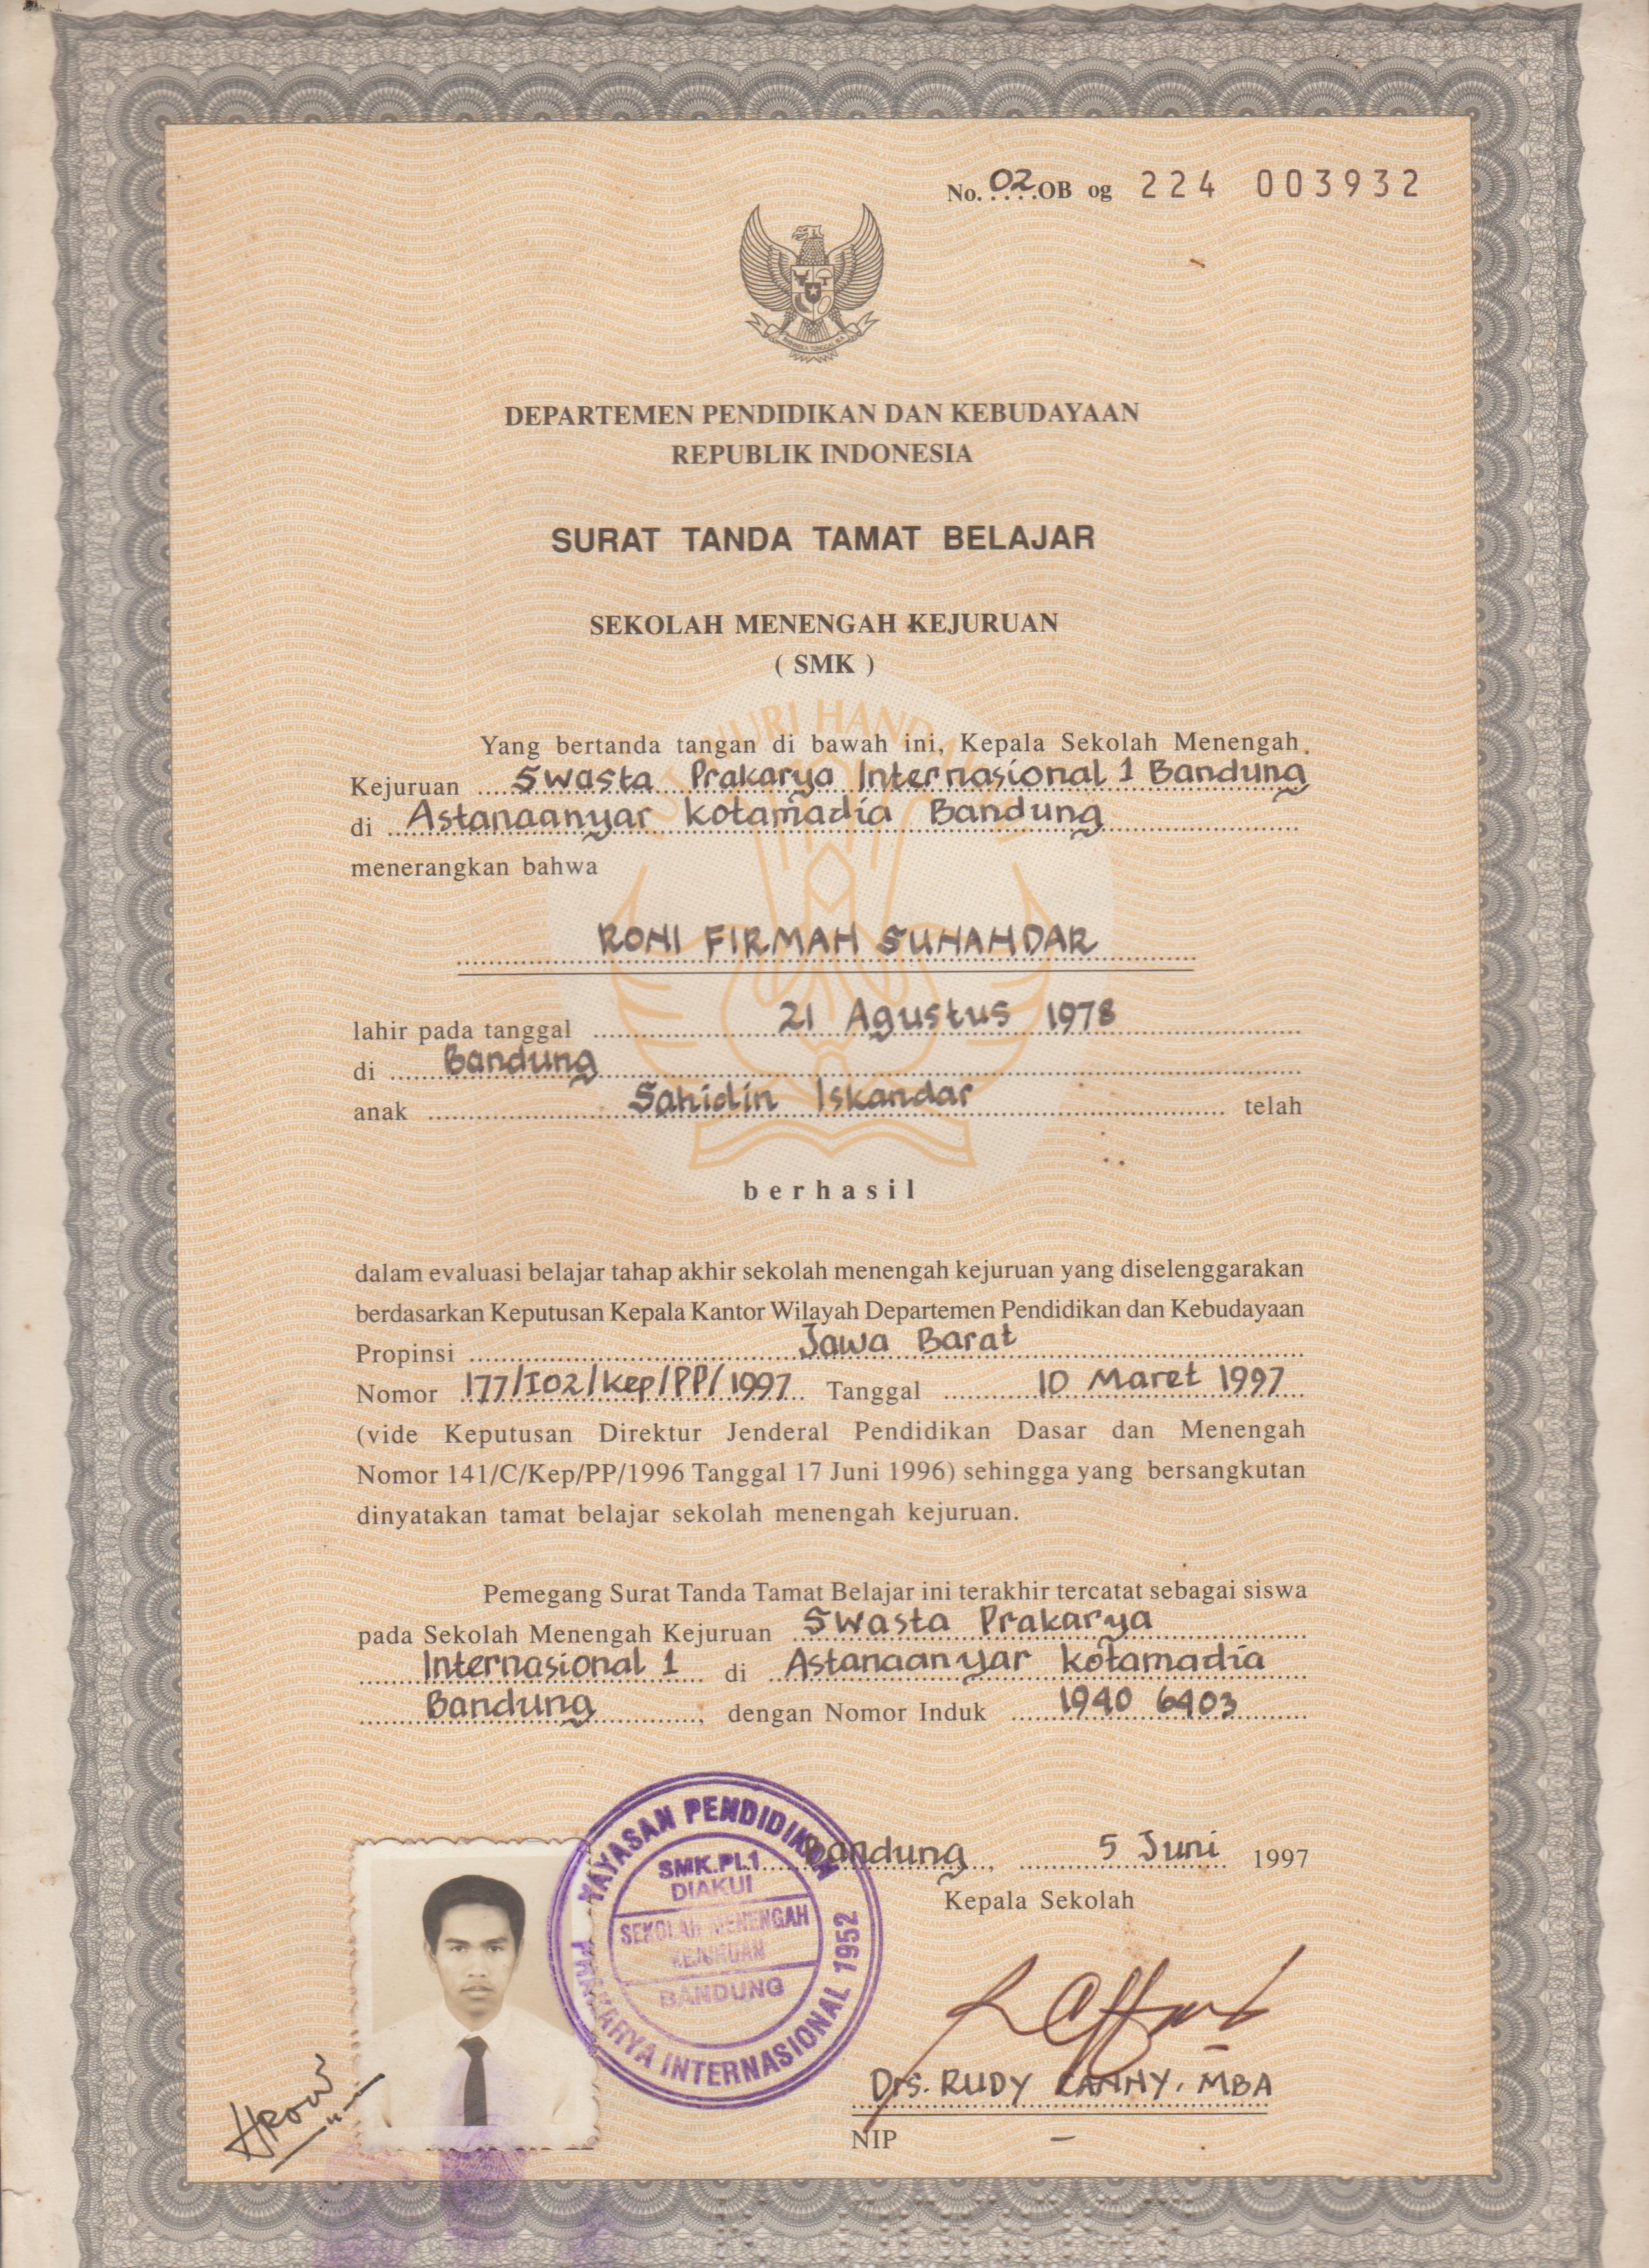 No. 02 OB og 224 003932
DEPARTEMEN PENDIDIKAN DAN KEBUDAYAAN
REPUBLIK INDONESIA
SURAT TANDA TAMAT BELAJAR
SEKOLAH MENENGAH KEJURUAN
( SMK )
Yang bertanda tangan di bawah ini, Kepala Sekolah Menengah
Kejuruan Swasta Prakarya Internasional 1 Bandung
di Astanaanyar Kotamadia Bandung
menerangkan bahwa
RONI FIRMAN SUNANDAR
lahir pada tanggal 21 Agustus 1978
di Bandung
anak Sahidin Iskandar telah
berhasil
dalam evaluasi belajar tahap akhir sekolah menengah kejuruan yang diselenggarakan
berdasarkan Keputusan Kepala Kantor Wilayah Departemen Pendidikan dan Kebudayaan
Propinsi Jawa Barat
Nomor 177/I02/Kep/PP/1997 Tanggal 10 Maret 1997
(vide Keputusan Direktur Jenderal Pendidikan Dasar dan Menengah
Nomor 141/C/Kep/PP/1996 Tanggal 17 Juni 1996) sehingga yang bersangkutan
dinyatakan tamat belajar sekolah menengah kejuruan.
Pemegang Surat Tanda Tamat Belajar ini terakhir tercatat sebagai siswa
pada Sekolah Menengah Kejuruan Swasta Prakarya
Internasional 1 di Astanaanyar Kotamadia
Bandung, dengan Nomor Induk 1940 6403
Bandung, 5 Juni 1997
Kepala Sekolah
YAYASAN PENDIDIKAN
PRAKARYA INTERNASIONAL 1952
SMK.PI.1
DIAKUI
SEKOLAH MENENGAH
KEJURUAN
BANDUNG
Drs. RUDY MBA
NIP -